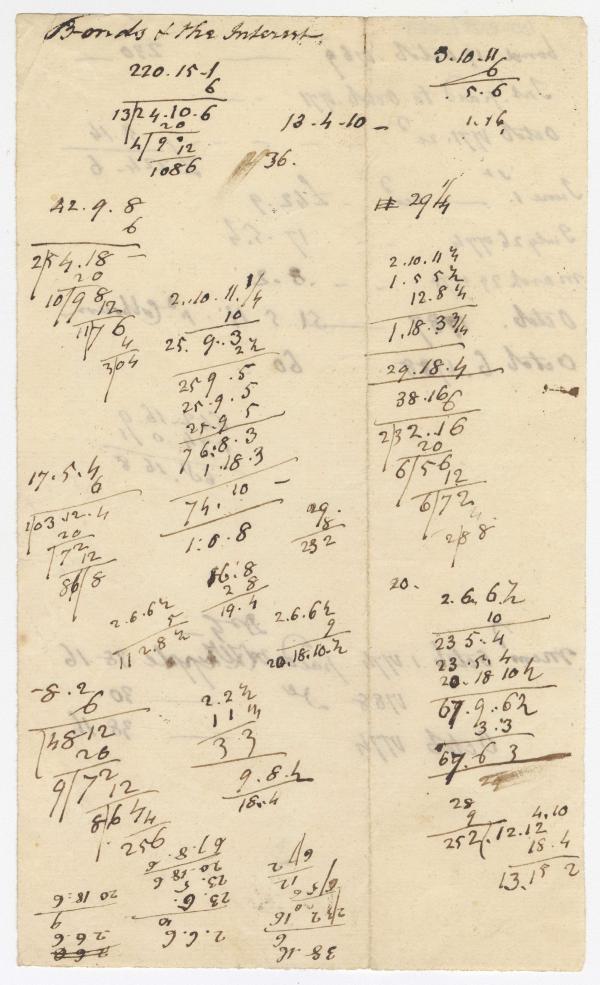 Bonds & the Interest
220.15-1
6
13/24.10.6
20
4/90
12
1086
13-4-10-
36.
42.9.8
6
2/54.18-
20
10/98
12
11/76
4
3/04
2..10.11.1/4
10
25.9.3
2 1/2
25 9.5
25.9.5
25.9 5
76.8.3
1.18.3
74.10-
1.8.8
17.5.4
6
1/03.12.4
20
7/2
12
86/8
29.
8
232
16.8
2 8
19.4
2.6.6 1/2
5
11 2.8 1/2
2.6.6 1/2
9
20.18.10 1/2
-8.2
6
/48 12
20
9/72
12
8/64
4
256
2.2 1/2
3 3
9.8.2
18.4
3.10.11
6
5.6
1.16
29 1/4
2.10.11 1/4
1.5 5 1/2
12.8 1/4
1.18.3 3/4
29.18.4
38.16
6
2/32.16
20
6/56
12
6/72
4
2/88
20.
2.6.6 1/2
10
23 5.4
23.5.4
20.18 10 1/2
67.9.6 1/2
3.3
67.6 3
28
9
252
.12.12
4.10
18.4
13.15 2
38.16
6
2/32.16
2.6.6
10
23.5.
20.18 6
67.8.6
2 6.6
9
20 18.6